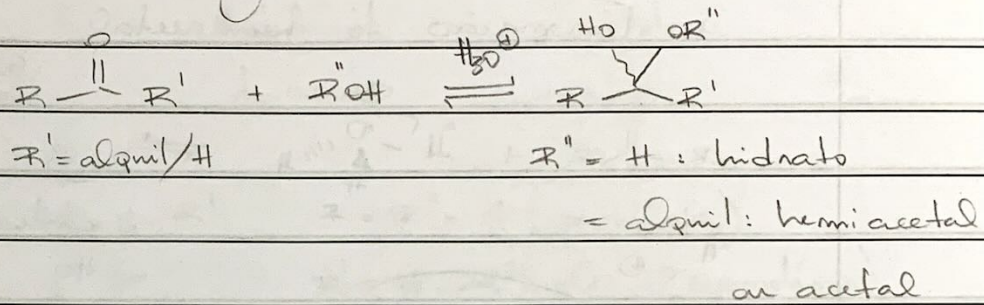 O HO OR"
R R' + R"OH H3O⊕ ⇌ R R'
R'= alquil/H R" = H : hidrato
= alquil: hemiacetal
ou acetal